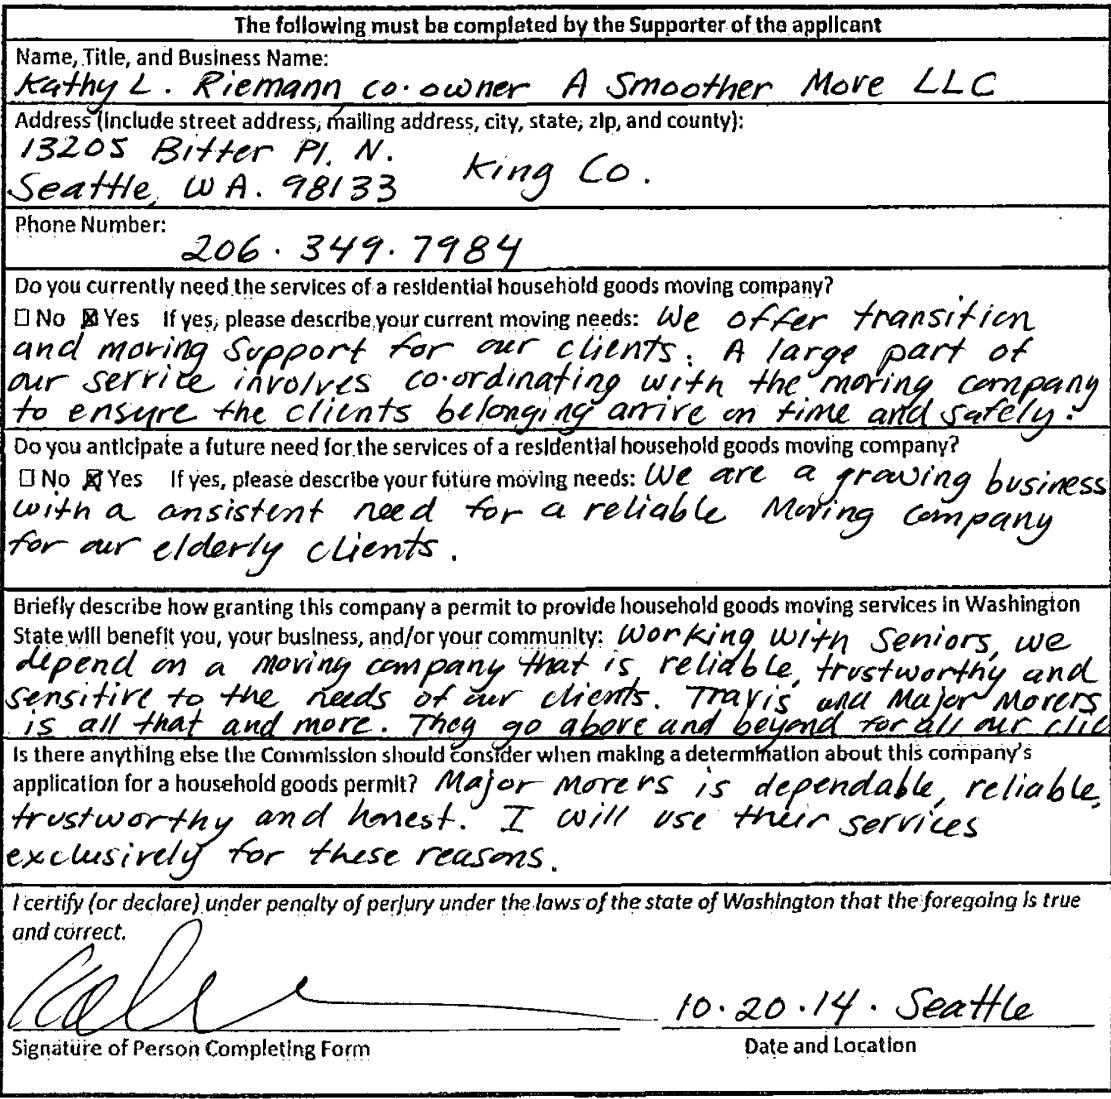 The following must be completed by the Supporter of the applicant
Name, Title, and Business Name:
Kathy L. Riemann co-owner A Smoother Move LLC
Address (include street address, mailing address, city, state, zip, and county):
13205 Bitter Pl. N.
Seattle, WA. 98133 King Co.
Phone Number:
206. 349. 7984
Do you currently need the services of a residential household goods moving company?
☐ No ☒ Yes If yes, please describe your current moving needs: We offer transition
and moving support for our clients. A large part of
our service involves co-ordinating with the moving company
to ensure the clients belonging arrive on time and safely.
Do you anticipate a future need for the services of a residential household goods moving company?
☐ No ☒ Yes If yes, please describe your future moving needs: We are a growing business
with a consistent need for a reliable Moving Company
for our elderly clients.
Briefly describe how granting this company a permit to provide household goods moving services in Washington
State will benefit you, your business, and/or your community: Working with Seniors, we
depend on a moving company that is reliable, trustworthy and
sensitive to the needs of our clients. Travis and Major Movers
is all that and more. They go above and beyond for all our clie
Is there anything else the Commission should consider when making a determination about this company's
application for a household goods permit? Major Movers is dependable, reliable,
trustworthy and honest. I will use their services
exclusively for these reasons.
I certify (or declare) under penalty of perjury under the laws of the state of Washington that the foregoing is true
and correct.
10.20.14. Seattle
Signature of Person Completing Form Date and Location